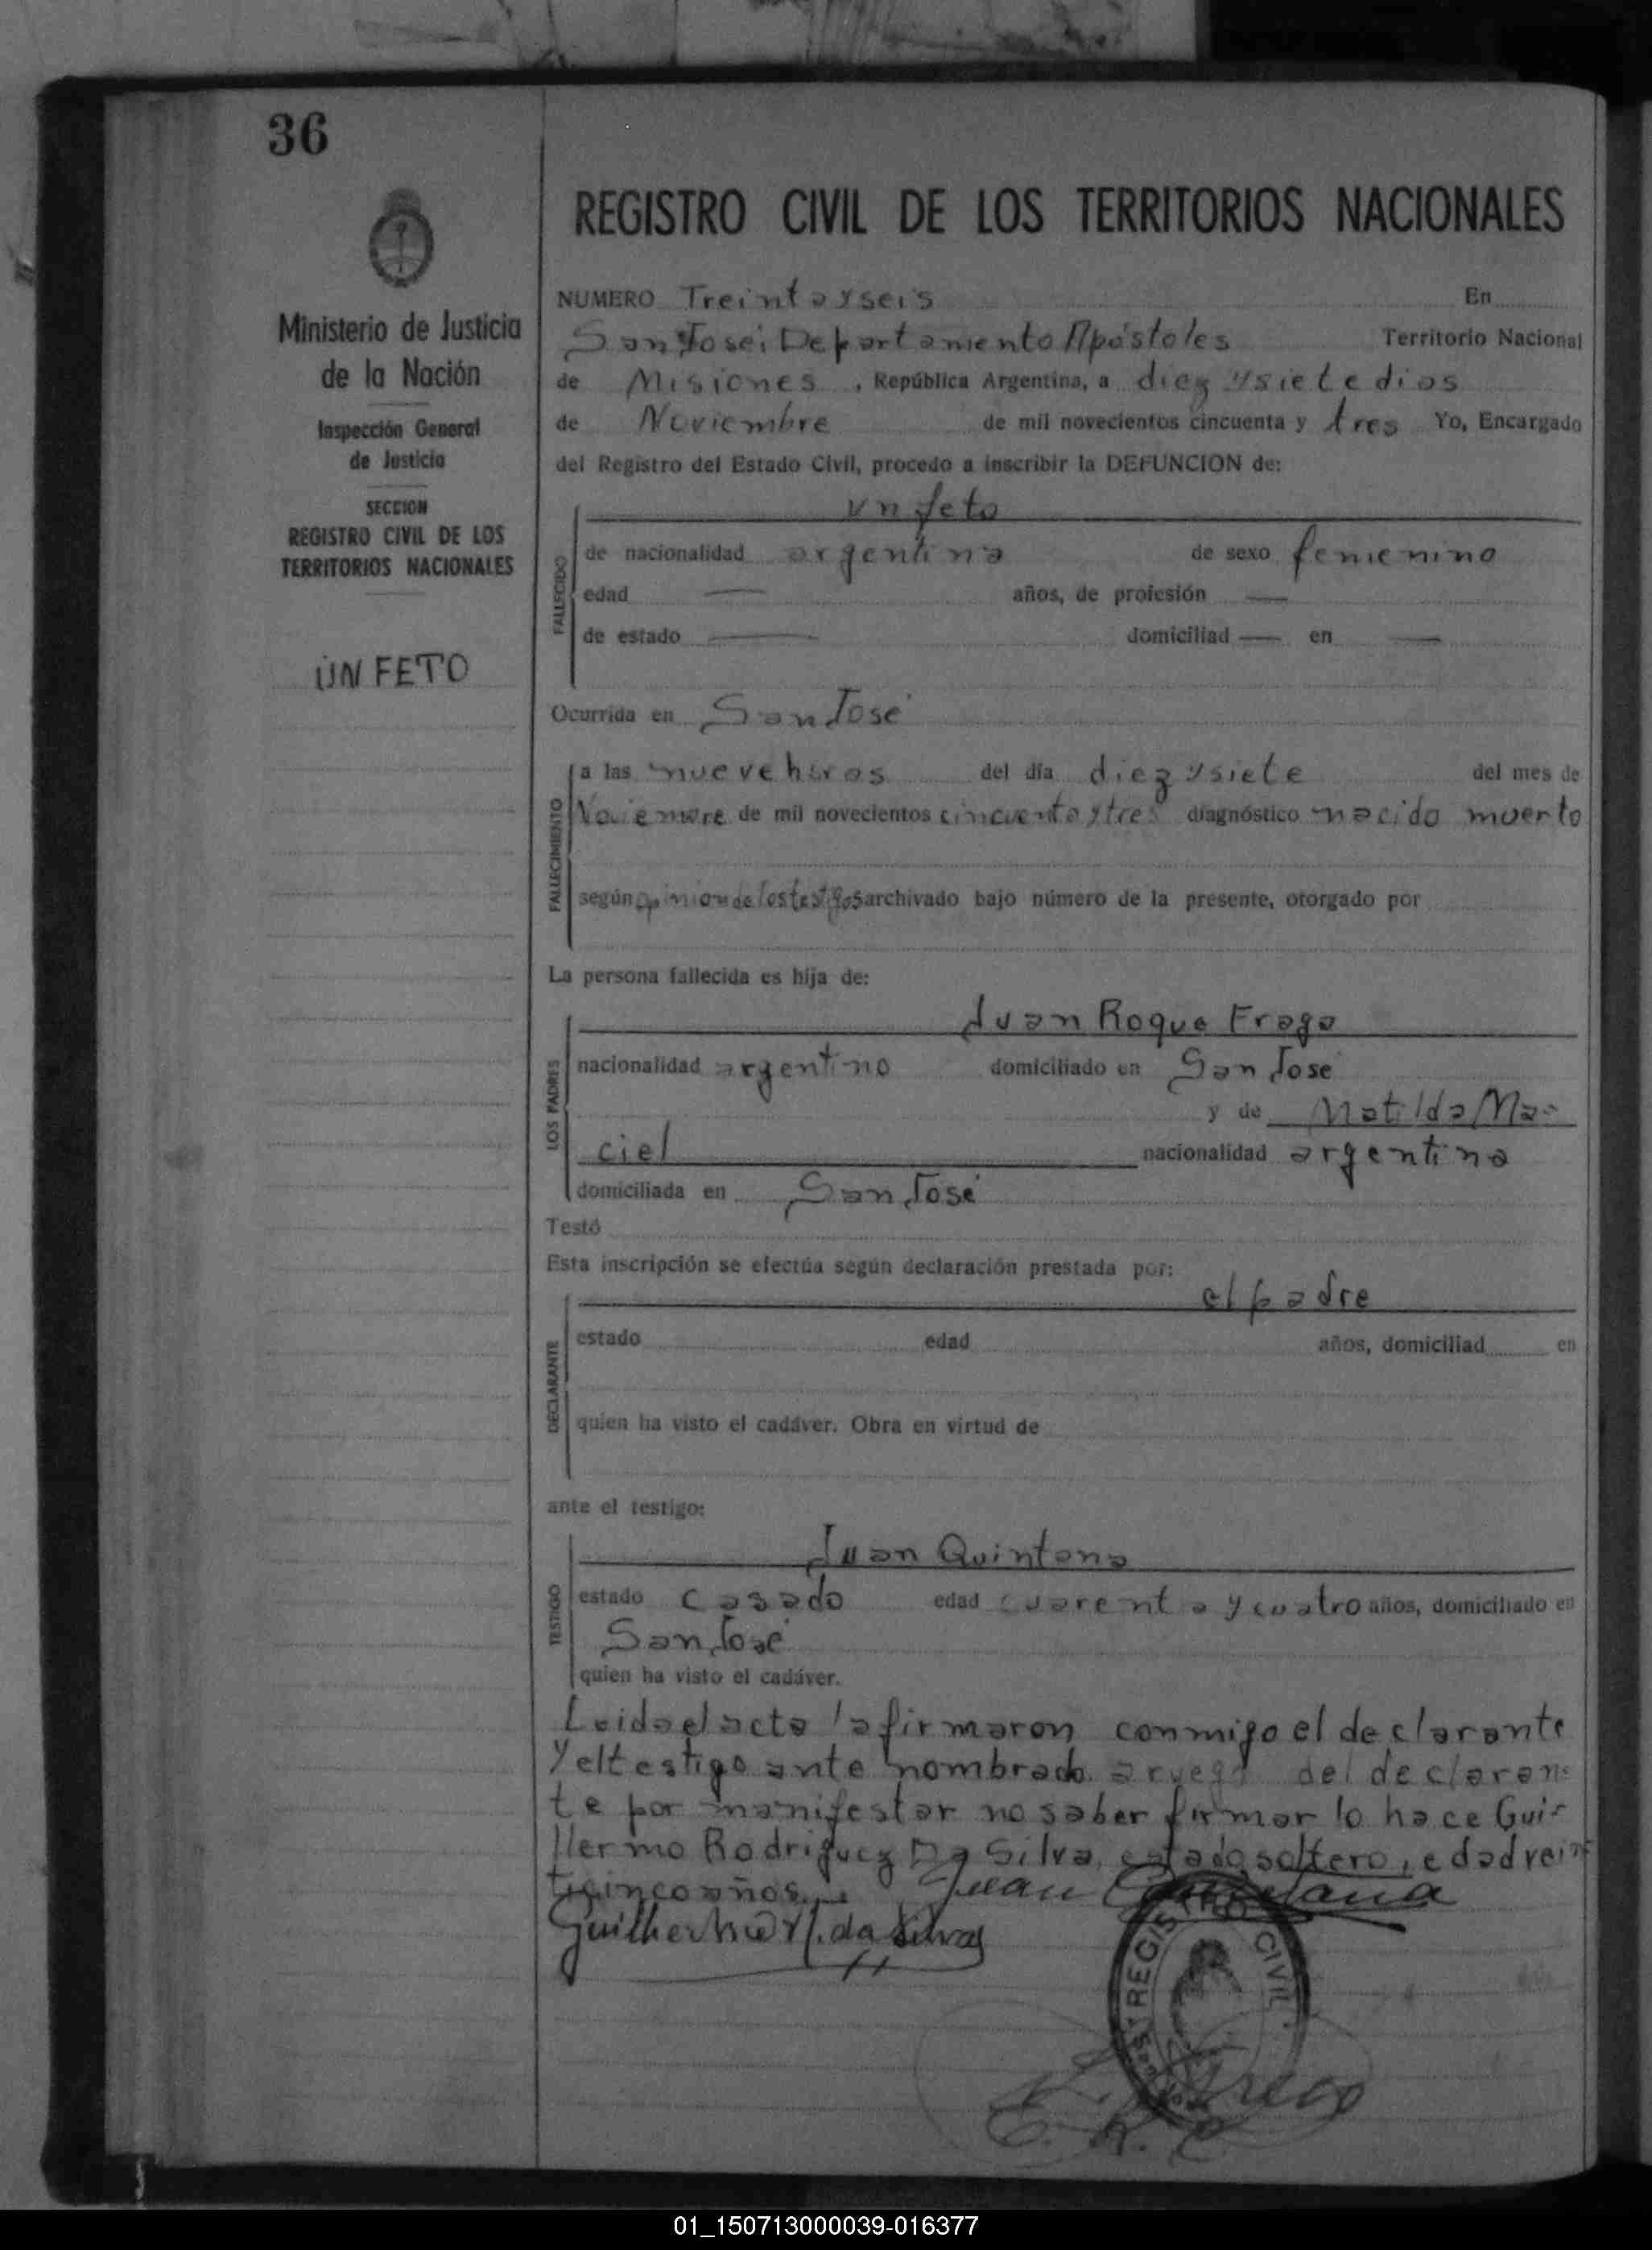 36
REGISTRO CIVIL DE LOS TERRITORIOS NACIONALES
Ministerio de Justicia
de la Nación
Inspección General
de Justicia
SECCION
REGISTRO CIVIL DE LOS
TERRITORIOS NACIONALES
UN FETO
NUMERO Treinta y seis En
San José; Departamento Apóstoles Territorio Nacional
de Misiones, República Argentina, a diez y siete dias
de Noviembre de mil novecientos cincuenta y tres Yo, Encargado
del Registro del Estado Civil, procedo a inscribir la DEFUNCION de:
un feto
FALLECIDO
de nacionalidad argentina de sexo femenino
edad — años, de profesión —
de estado — domiciliad — en —
Ocurrida en San José
FALLECIMIENTO
a las nueve horas del día diez y siete del mes de
Noviembre de mil novecientos cincuenta y tres diagnóstico nacido muerto
según opinion de los testigos archivado bajo número de la presente, otorgado por
La persona fallecida es hija de:
Juan Roque Fraga
LOS PADRES
nacionalidad argentino domiciliado en San José
y de Matilda Ma-
ciel nacionalidad argentina
domiciliada en San José
Testó
Esta inscripción se efectúa según declaración prestada por:
el padre
DECLARANTE
estado edad años, domiciliad en
quien ha visto el cadáver. Obra en virtud de
ante el testigo:
Juan Quintana
TESTIGO
estado casado edad cuarenta y cuatro años, domiciliado en
San José
quien ha visto el cadáver.
Leida el acta la firmaron conmigo el declarante
y el testigo ante nombrado a ruego del declaran-
te por manifestar no saber firmar lo hace Gui-
llermo Rodriguez Da Silva, estado soltero, edad vein-
ticinco años.
Juan Quintana
Guilherme R. da Silva
REGISTRO CIVIL
01_150713000039-016377